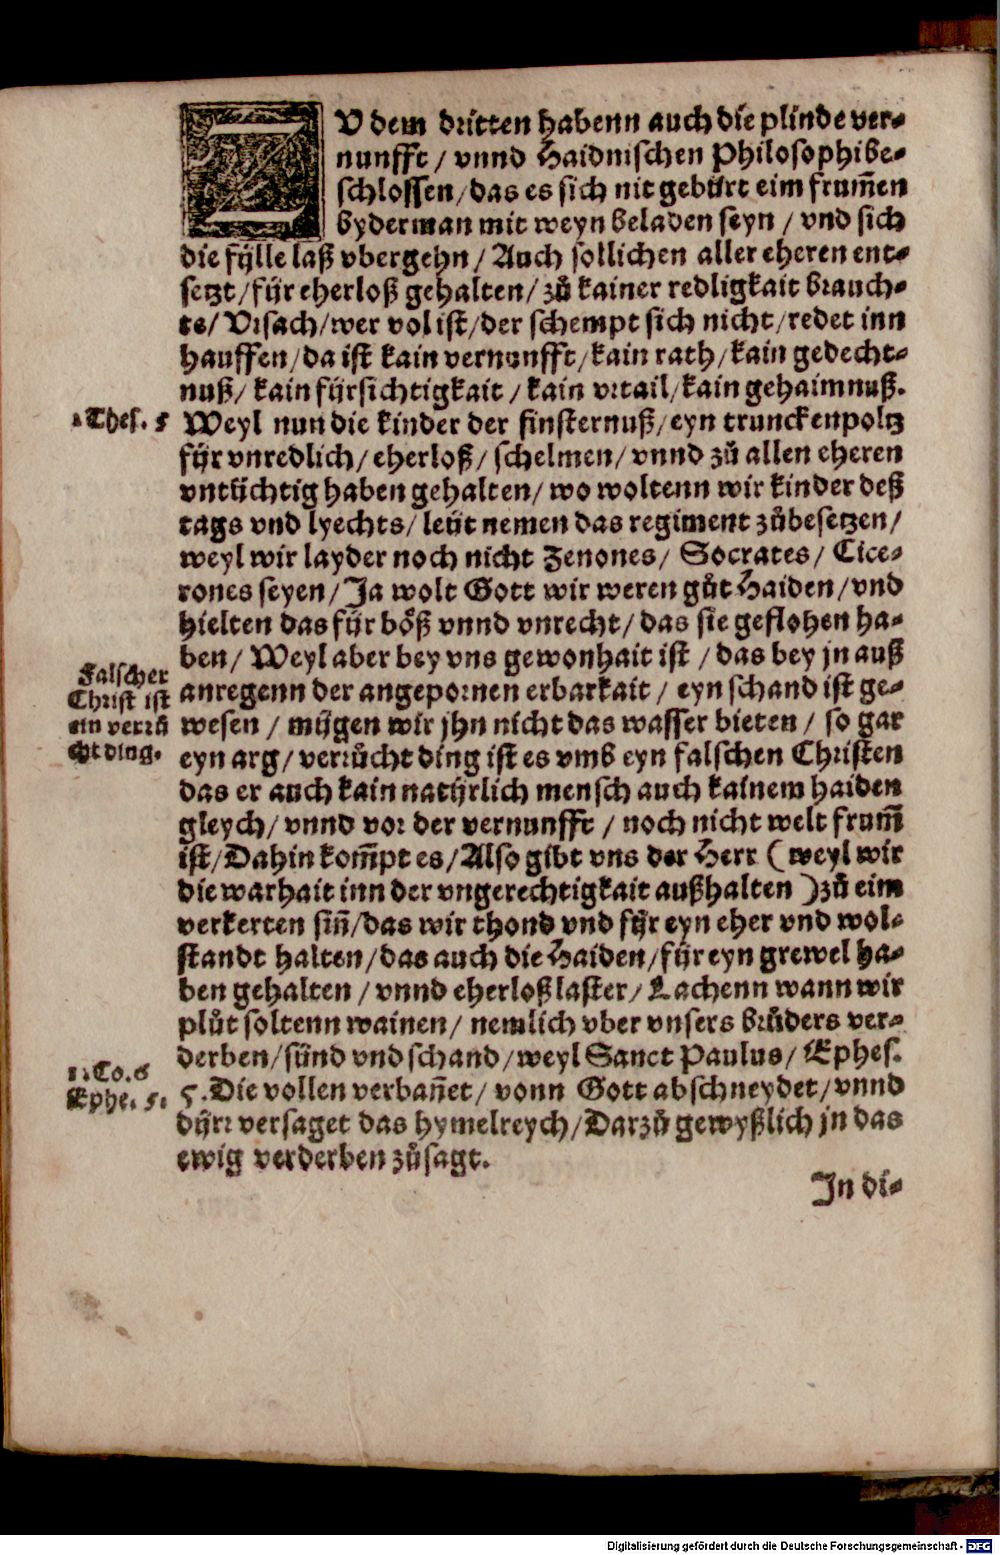 ZV dem dritten habenn auch die plinde ver-
nunfft / vnnd Haidnischen Philosophi be-
schlossen / das es sich nit gebürt eim frum̃en
byderman mit weyn beladen seyn / vnd sich
die fÿlle laß vbergehn / Auch sollichen aller eheren ent-
setzt / für eherloß gehalten / zů kainer redligkait brauch-
te / Vrsach / wer vol ist / der schempt sich nicht / redet inn
hauffen / da ist kain vernunfft / kain rath / kain gedecht-
nuß / kain fürsichtigkait / kain vrtail / kain gehaimnuß.
1 Thes. 5
Weyl nun die kinder der finsternuß / eyn trunckenpoltz
für vnredlich / eherloß / schelmen / vnnd zů allen eheren
vntüchtig haben gehalten / wo woltenn wir kinder deß
tags vnd lyechts / leüt nemen das regiment zůbesetzen /
weyl wir layder noch nicht Zenones / Socrates / Cice-
rones seyen / Ja wolt Gott wir weren gůt Haiden / vnd
hielten das für böß vnnd vnrecht / das sie geflohen ha-
ben / Weyl aber bey vns gewonhait ist / das bey jn auß
Falscher
Christ ist
ein verrů
cht ding.
anregenn der angepornen erbarkait / eyn schand ist ge-
wesen / mügen wir jhn nicht das wasser bieten / so gar
eyn arg / verrůcht ding ist es vmb eyn falschen Christen
das er auch kain natürlich mensch auch kainem haiden
gleych / vnnd vor der vernunfft / noch nicht welt frum̃
ist / Dahin kom̃pt es / Also gibt vns der Herr ( weyl wir
die warhait inn der vngerechtigkait außhalten ) zů eim
verkerten siñ / das wir thond vnd für eyn eher vnd wol-
standt halten / das auch die Haiden / für eyn grewel ha-
ben gehalten / vnnd eherloß laster / Lachenn wann wir
plůt soltenn wainen / nemlich vber vnsers brůders ver-
derben / sünd vnd schand / weyl Sanct Paulus / Ephes.
1. Co. 6
Ephe. 5.
5. Die vollen verbañet / vonn Gott abschneydet / vnnd
dürr versaget das hymelreych / Darzů gewyßlich jn das
ewig verderben zůsagt.
In di-
Digitalisierung gefördert durch die Deutsche Forschungsgemeinschaft - DFG